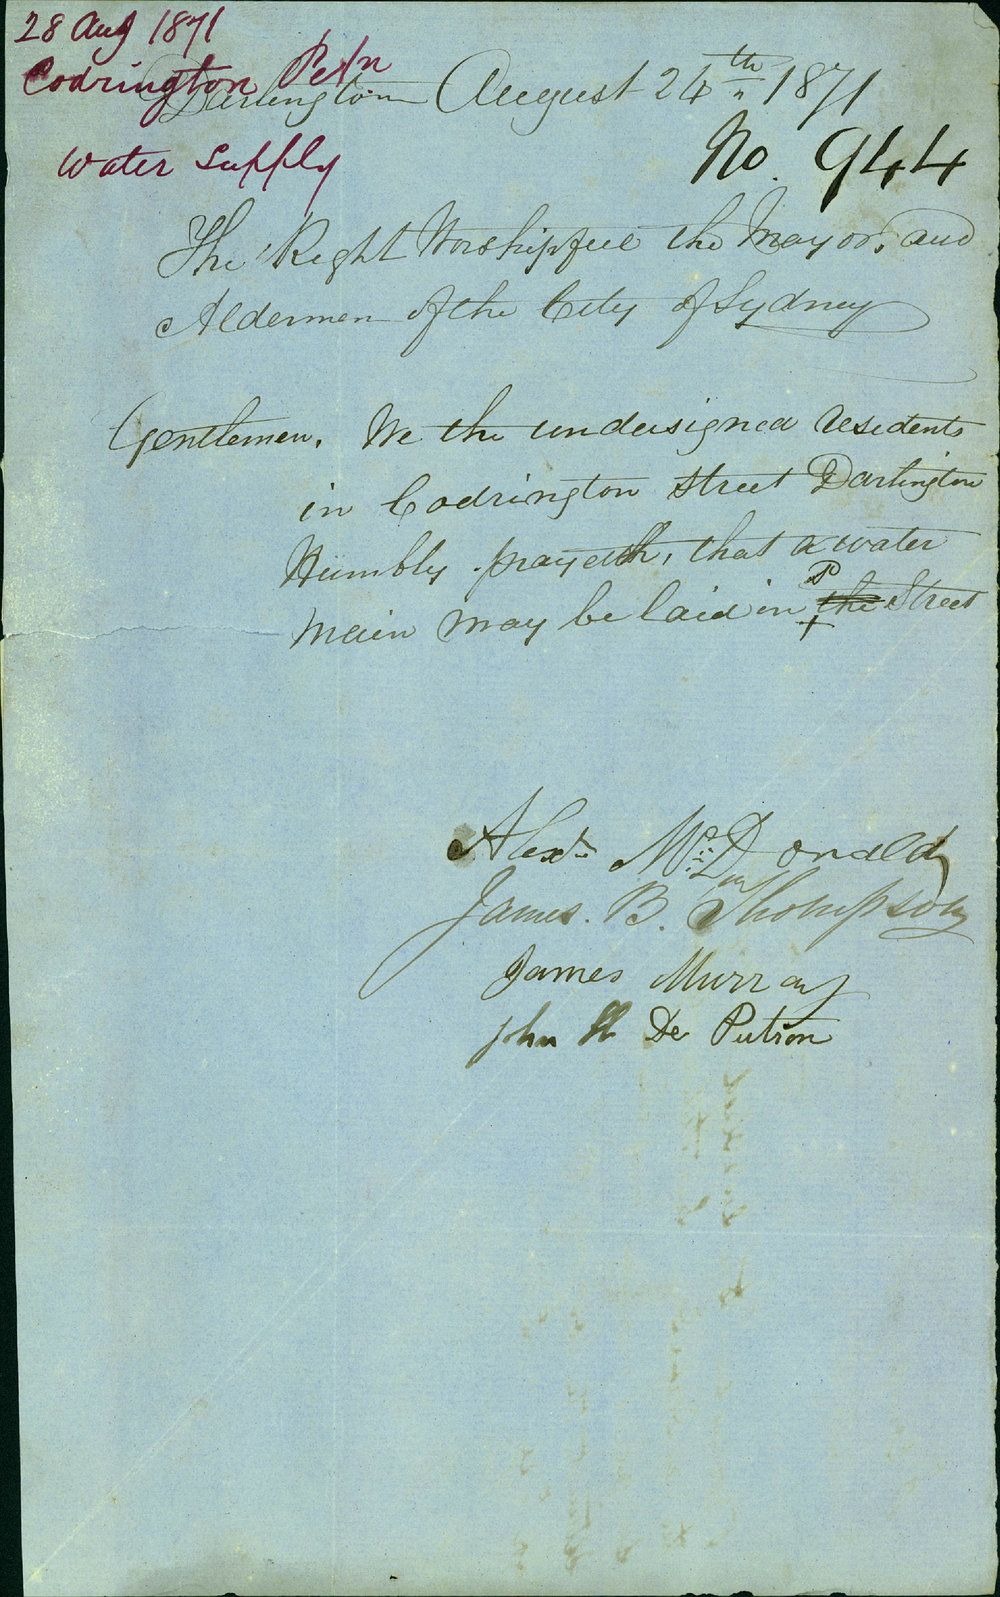 28 Aug 1871
Codrington Petn
Water Supply
Darlington August 24th 1871
No. 944
The Right Worshipful the Mayor, and
Aldermen of the City of Sydney
Gentlemen, We the undersigned residents
in Codrington Street Darlington
Humbly prayeth, that a water
Main may be laid in the Street
Alexr McDonald
James. B. Thompson
James Murray
John H De Putron